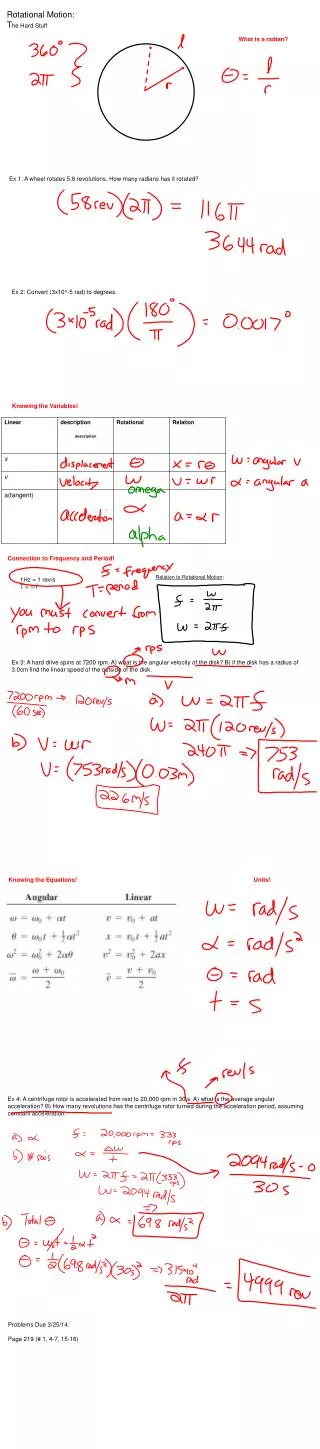 Rotational Motion:
The Hard Stuff
What is a radian?
360°
2π
l
r
θ = l/r
Ex 1: A wheel rotates 5.8 revolutions. How many radians has it rotated?
(58rev)(2π) = 116π
3644 rad
Ex 2: Convert (3x10^-5 rad) to degrees.
(3×10⁻⁵ rad)(180°/π) = 0.0017°
Knowing the Variables!
Linear description Rotational Relation
description
x displacement θ x = rθ
v velocity ω omega v = ωr
a(tangent) acceleration α alpha a = αr
ω = angular v
α = angular a
Connection to Frequency and Period!
f = frequency
T = period
1Hz = 1 rev/s
Relation to Rotational Motion:
f = ω/2π
ω = 2πf
You must convert from
rpm to rps
rps
ω
Ex 3: A hard drive spins at 7200 rpm. A) what is the angular velocity of the disk? B) if the disk has a radius of
3.0cm find the linear speed of the outside of the disk.
m
V
7200rpm → 120rev/s
(60 sec)
a) ω = 2πf
ω = 2π(120rev/s)
240π => 753 rad/s
b) V = ωr
V = (753rad/s)(0.03m)
22.6m/s
Knowing the Equations!
Units!
Angular Linear
ω = ω₀ + αt v = v₀ + at
θ = ω₀t + ½αt² x = v₀t + ½at²
ω² = ω₀² + 2αθ v² = v₀² + 2ax
ω̅ = (ω + ω₀)/2 v̅ = (v + v₀)/2
ω = rad/s
α = rad/s²
θ = rad
t = s
f
rev/s
Ex 4: A centrifuge rotor is accelerated from rest to 20,000 rpm in 30 s. A) what is the average angular
acceleration? B) How many revolutions has the centrifuge rotor turned during the acceleration period, assuming
constant acceleration.
a) α
b) # revs
f = 20,000rpm = 333 rps
α = Δω/t
ω = 2πf = 2π(333) rps
ω = 2094 rad/s
=>
2094 rad/s - 0
30 s
a) α = 69.8 rad/s²
b) Total θ
θ = ω₀t + ½αt²
θ = ½(69.8 rad/s²)(30s)² => 3.15×10⁴ rad
2π
= 4999 rev
Problems Due 3/25/14:
Page 219 (# 1, 4-7, 15-16)